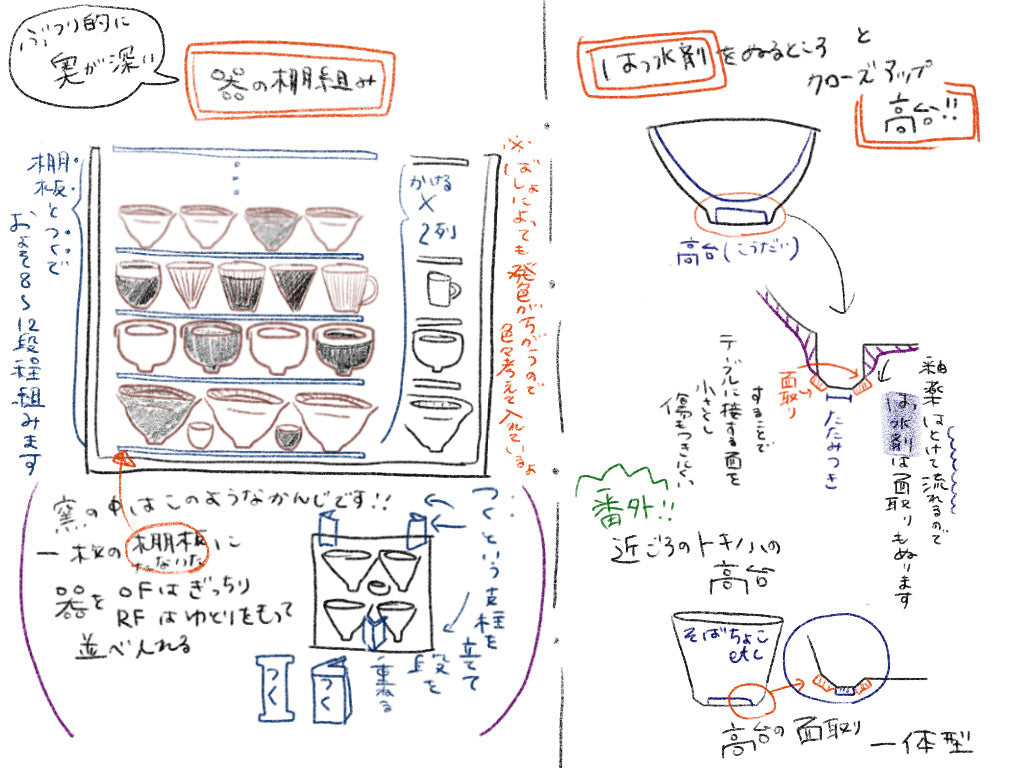 ぶつり的に
奥が深い
器の棚組み
棚板とつくで
およそ8〜12段程組みます
かける
×
2列
※ばしょによっても発色がちがうので
色々考えて入れているよ
窯の中はこのようなかんじです!!
一枚の棚板に
たないた
器を OFはぎっちり
RFはゆとりをもって
並べ入れる
つくという支柱を
立てて
段を
重ねる
つく
つく
はっ水剤をぬるところ と
クローズアップ
高台!!
高台(こうだい)
釉薬はとけて流れるので
はっ水剤は面取りもぬります
面取り
たたみつき
することで
テーブルに接する面を
小さくし
傷もつきにくい
番外!!
近ごろのトキノハの
高台
そばちょこ
etc
高台の面取り
一体型